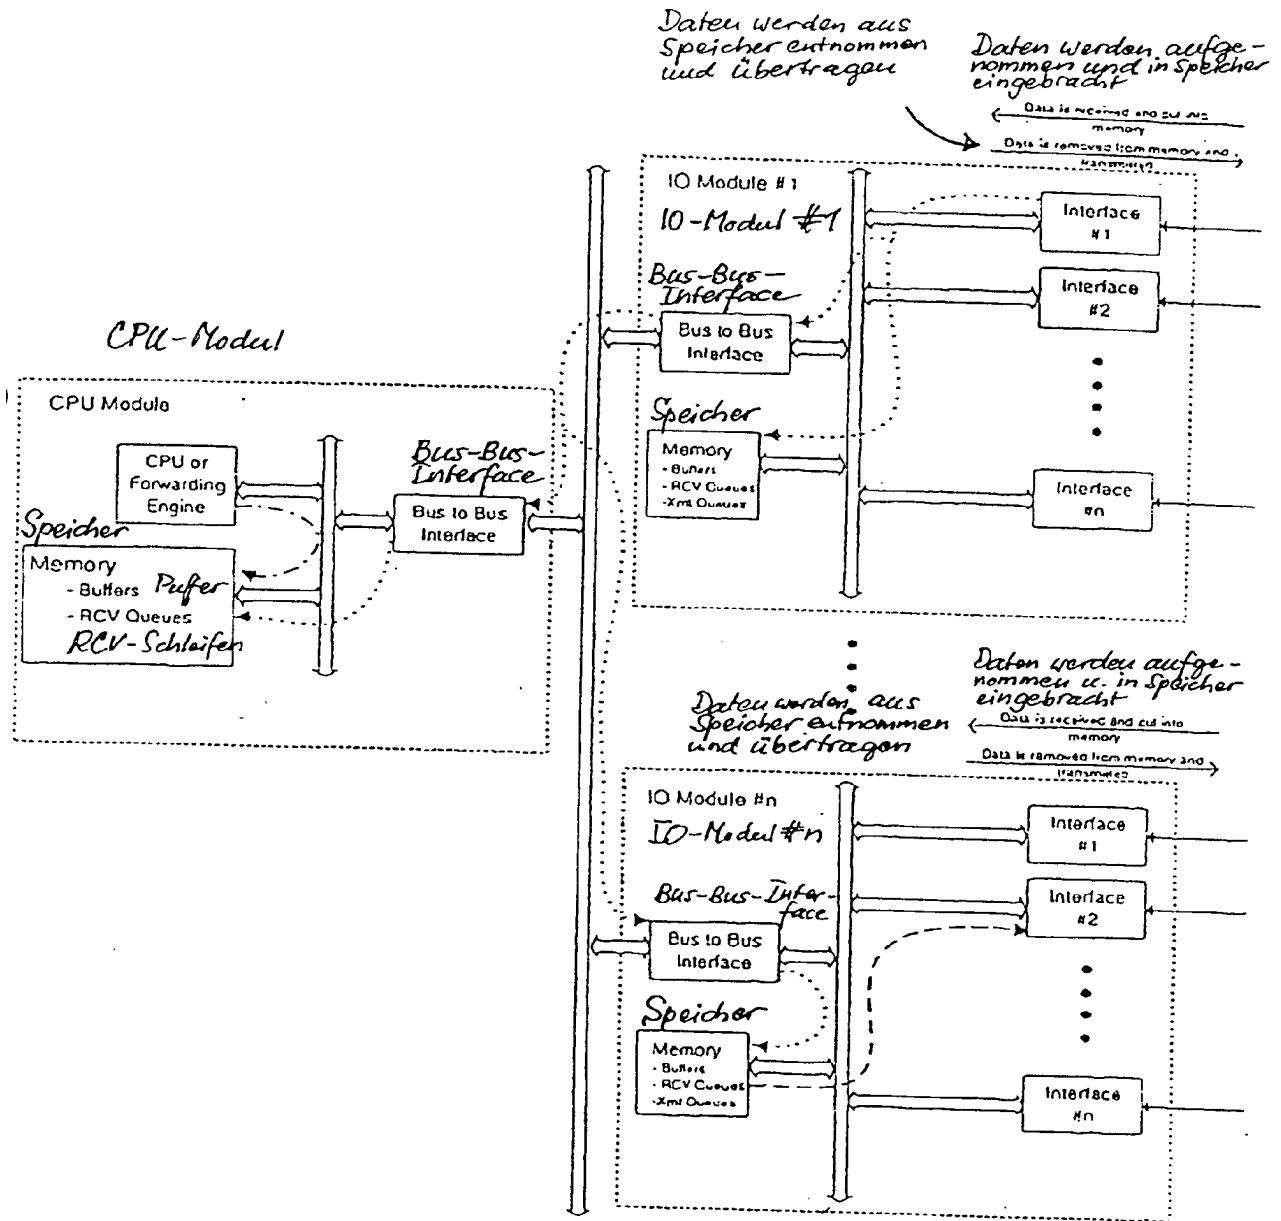 Daten werden aus
Speicher entnommen
und übertragen
Daten werden aufge-
nommen und in Speicher
eingebracht
Data is received and put into
memory
Data is removed from memory and
transmitted
IO Module #1
IO-Modul #1
Interface
#1
Bus-Bus-
Interface
Interface
#2
Bus to Bus
Interface
CPU-Modul
CPU Module
Speicher
Memory
- Buffers
- RCV Queues
- Xmt Queues
Interface
#n
CPU or
Forwarding
Engine
Bus-Bus-
Interface
Bus to Bus
Interface
Speicher
Memory
- Buffers Puffer
- RCV Queues
RCV-Schleifen
Daten werden aufge-
nommen u. in Speicher
eingebracht
Daten werden aus
Speicher entnommen
und übertragen
Data is received and put into
memory
Data is removed from memory and
transmitted
IO Module #n
IO-Modul #n
Interface
#1
Bus-Bus-Inter-
face
Interface
#2
Bus to Bus
Interface
Speicher
Memory
- Buffers
- RCV Queues
-Xmt Queues
Interface
#n